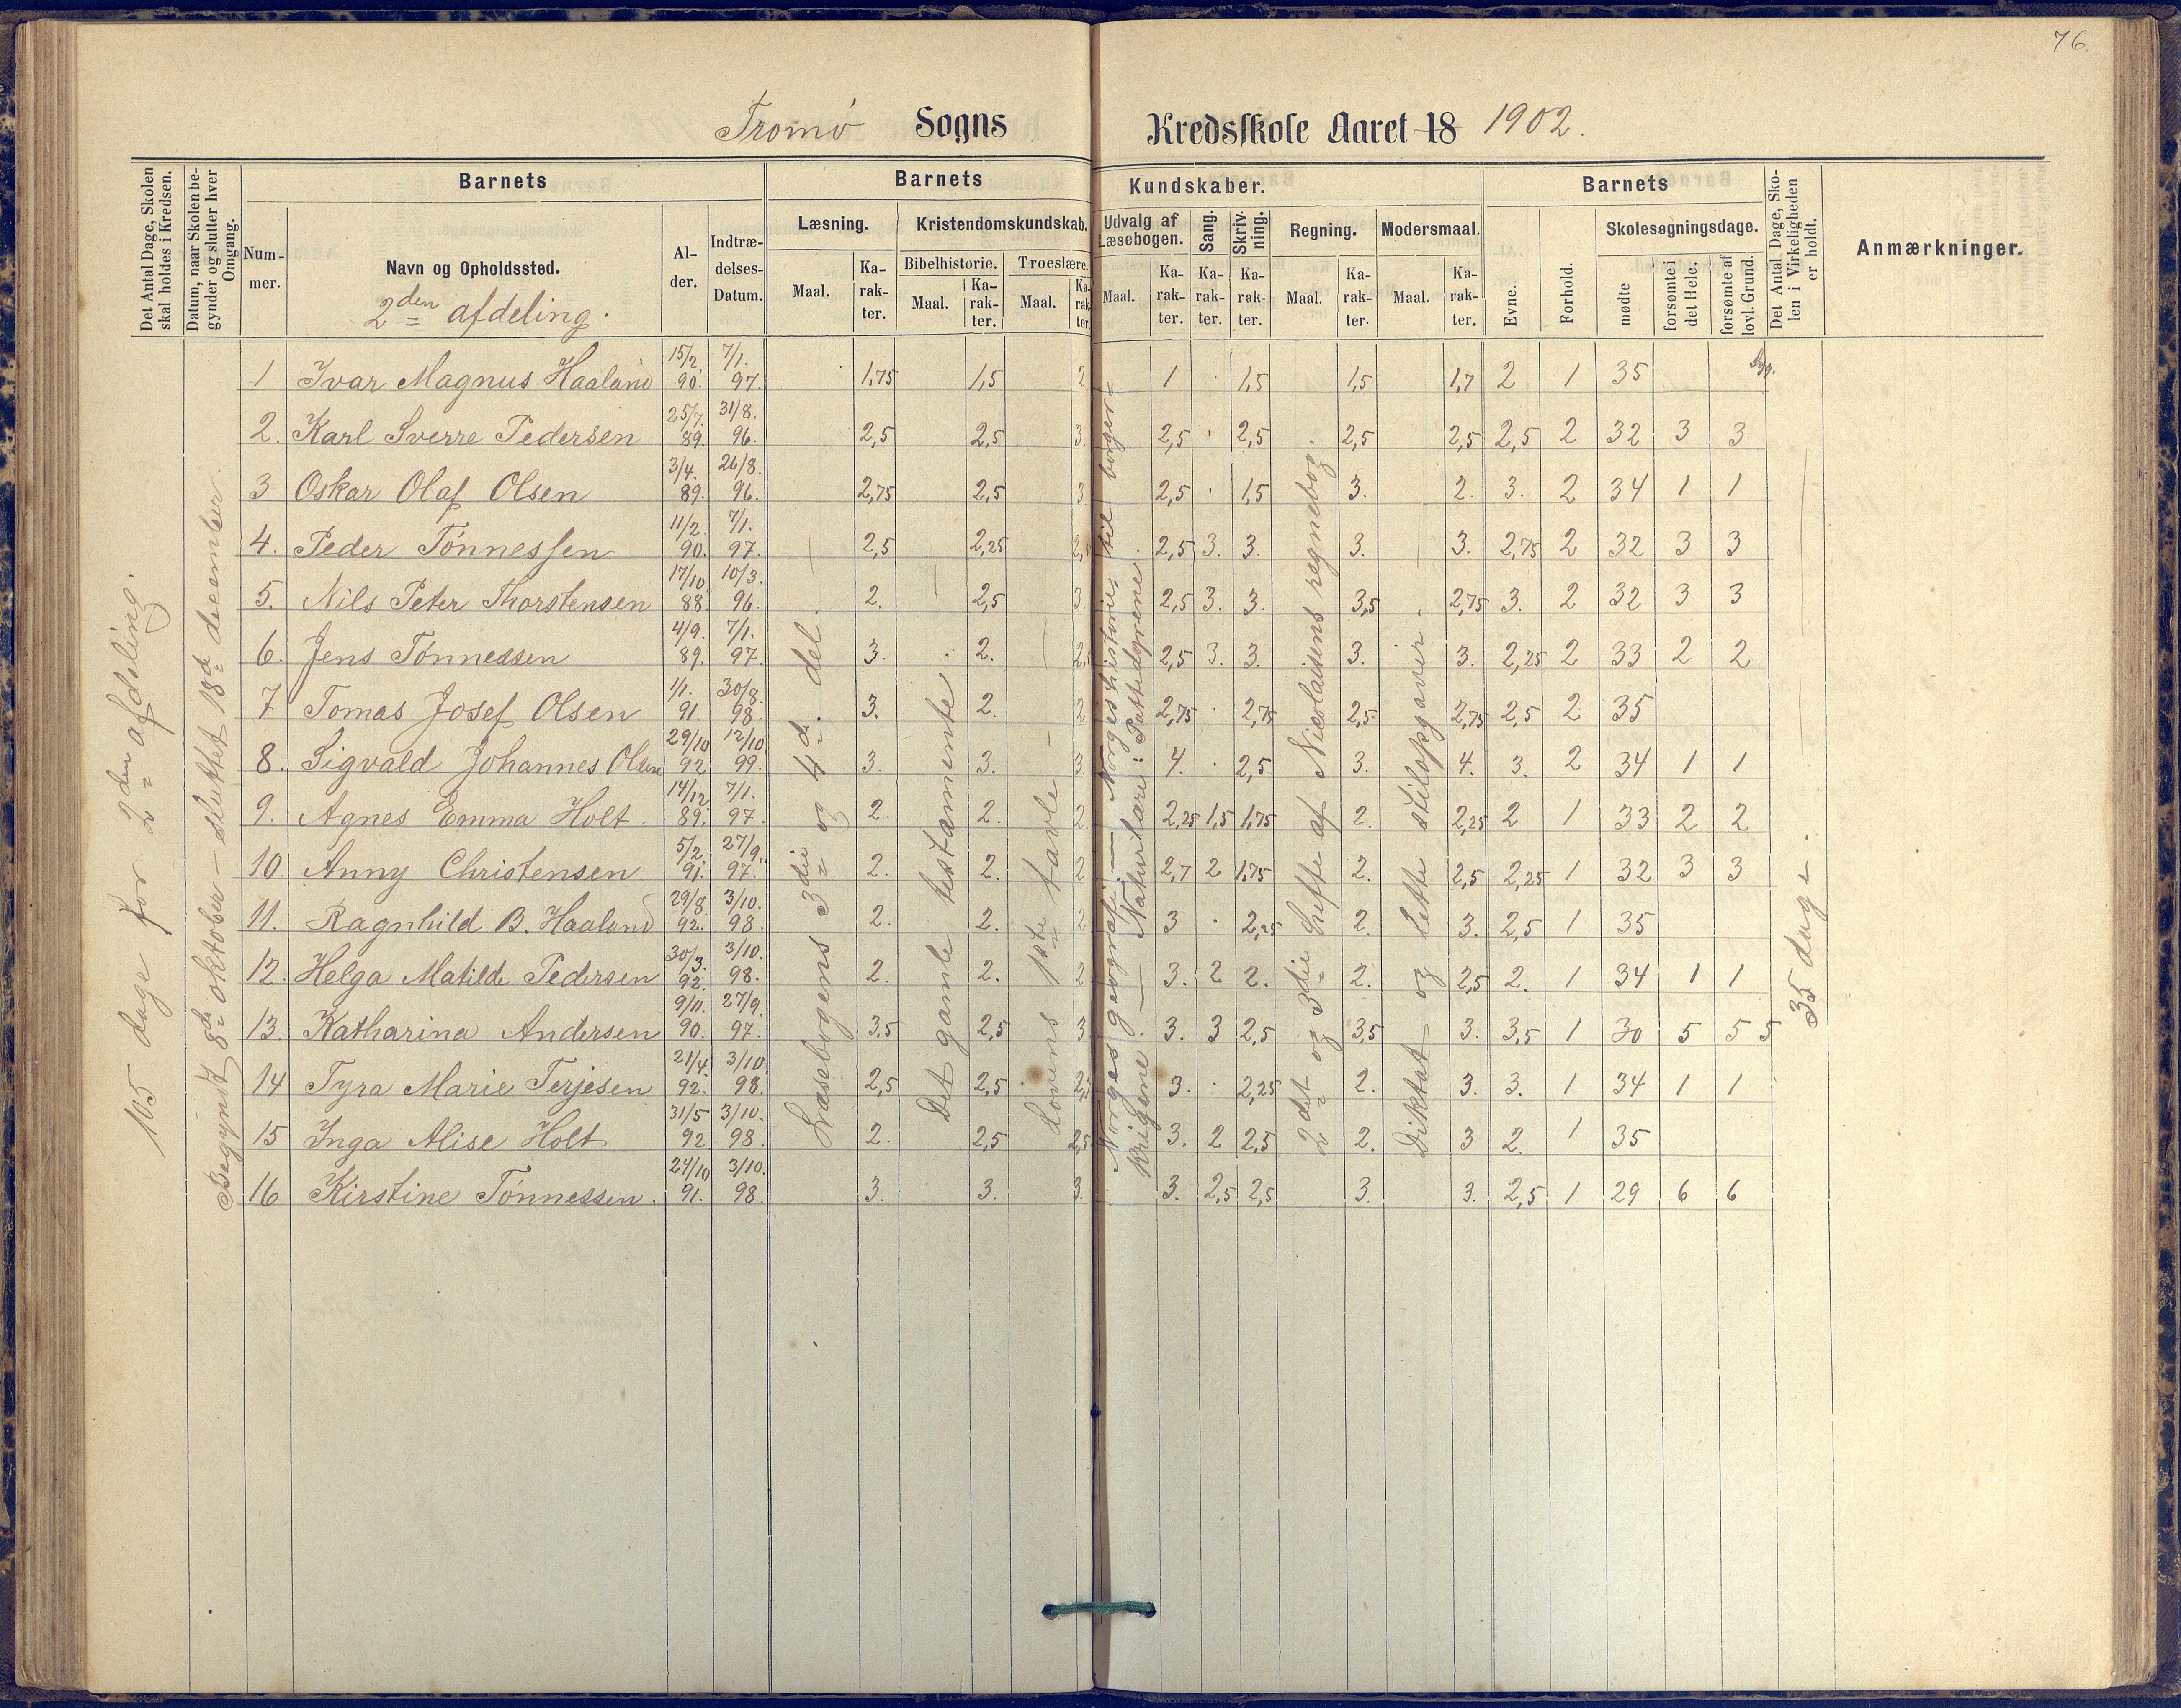 76.
Tromø Sogns Kredsskole Aaret 18 1902.
Det Antal Dage, Skolen skal holdes i Kredsen.
Datum, naar Skolen begynder og slutter hver Omgang.
Barnets
Nummer.
Navn og Opholdssted.
2den afdeling.
Alder.
Indtrædelses-Datum.
Barnets Kundskaber.
Læsning. Maal. Karakter.
Kristendomskundskab.
Bibelhistorie. Maal. Karakter.
Troeslære. Maal. Karakter.
Udvalg af Læsebogen. Maal. Karakter.
Sang. Karakter.
Skrivning. Karakter.
Regning. Maal. Karakter.
Modersmaal. Maal. Karakter.
Barnets
Evne. Forhold.
Skolesøgningsdage.
mødte
forsømte i det Hele.
forsømte af lovl. Grund.
Det Antal Dage, Skolen i Virkeligheden er holdt.
Anmærkninger.
105 dage for 2den afdeling.
Begyndt 8de oktober – sluttet 18d december.
Læsebogens 3die og 4d. del.
Det gamle testamente
Lovens 1ste tavle
Norges geografi. — Norgeshistorie, til borger=
krigene. — Naturlære: Pattedyrene
2det og 3die hefte af Nicolaisens regnebog
Diktat og lette stilopgaver.
35 dage.
1 Ivar Magnus Haaland 15/2. 90. 7/1. 97. 1,75 1,5 2 1 . 1,5 1,5 1,7 2 1 35
2. Karl Sverre Pedersen 25/7. 89. 31/8. 96. 2,5 2,5 3. 2,5 . 2,5 2,5 2,5 2,5 2 32 3 3
3 Oskar Olaf Olsen 3/4. 89. 26/8. 96. 2,75 2,5 3 2,5 . 1,5 3. 2. 3. 2 34 1 1
4. Peder Tønnessen 11/2. 90. 7/1. 97. 2,5 2,25 2,5 2,5 3. 3. 3. 3. 2,75 2 32 3 3
5. Nils Peter Thorstensen 17/10. 88. 10/3. 96. 2. 2,5 3. 2,5 3. 3. 3,5 2,75 3. 2 32 3 3
6. Jens Tønnessen 4/9. 89. 7/1. 97. 3. 2. 2,5 2,5 3. 3. 3. 3. 2,25 2 33 2 2
7 Tomas Josef Olsen 1/1. 91. 30/8. 98. 3. 2. 2 2,75 . 2,75 2,5 2,75 2,5 2 35
8. Sigvald Johannes Olsen 29/10 92 12/10 99. 3. 3. 3 4. . 2,5 3. 4. 3. 2 34 1 1
9. Agnes Emma Holt. 14/12. 89. 7/1. 97. 2. 2. 2 2,25 1,5 1,75 2. 2,25 2 1 33 2 2
10. Anny Christensen 5/2. 91. 27/9. 97. 2. 2. 2 2,7 2 1,75 2. 2,5 2,25 1 32 3 3
11. Ragnhild B. Haaland 29/8. 92. 3/10. 98. 2. 2. 2 3 . 2,25 2. 3. 2,5 1 35
12. Helga Matilde Pedersen 30/3. 92. 3/10. 98. 2. 2. 2 3. 2 2. 2. 2,5 2. 1 34 1 1
13. Katharina Andersen 9/11. 90. 27/9. 97. 3,5 2,5 3 3. 3 2,5 3,5 3. 3,5 1 30 5 5 5
14 Tyra Marie Terjesen 21/4. 92. 3/10 98. 2,5 2,5 2,5 3. . 2,25 2. 3. 3. 1 34 1 1
15 Inga Alise Holt 31/5 92 3/10. 98. 2. 2,5 2,5 3. 2 2,5 2. 3 2. 1 35
16 Kirstine Tønnessen. 24/10 91. 3/10. 98. 3. 3. 3. 3. 2,5 2,5 3. 3. 2,5 1 29 6 6